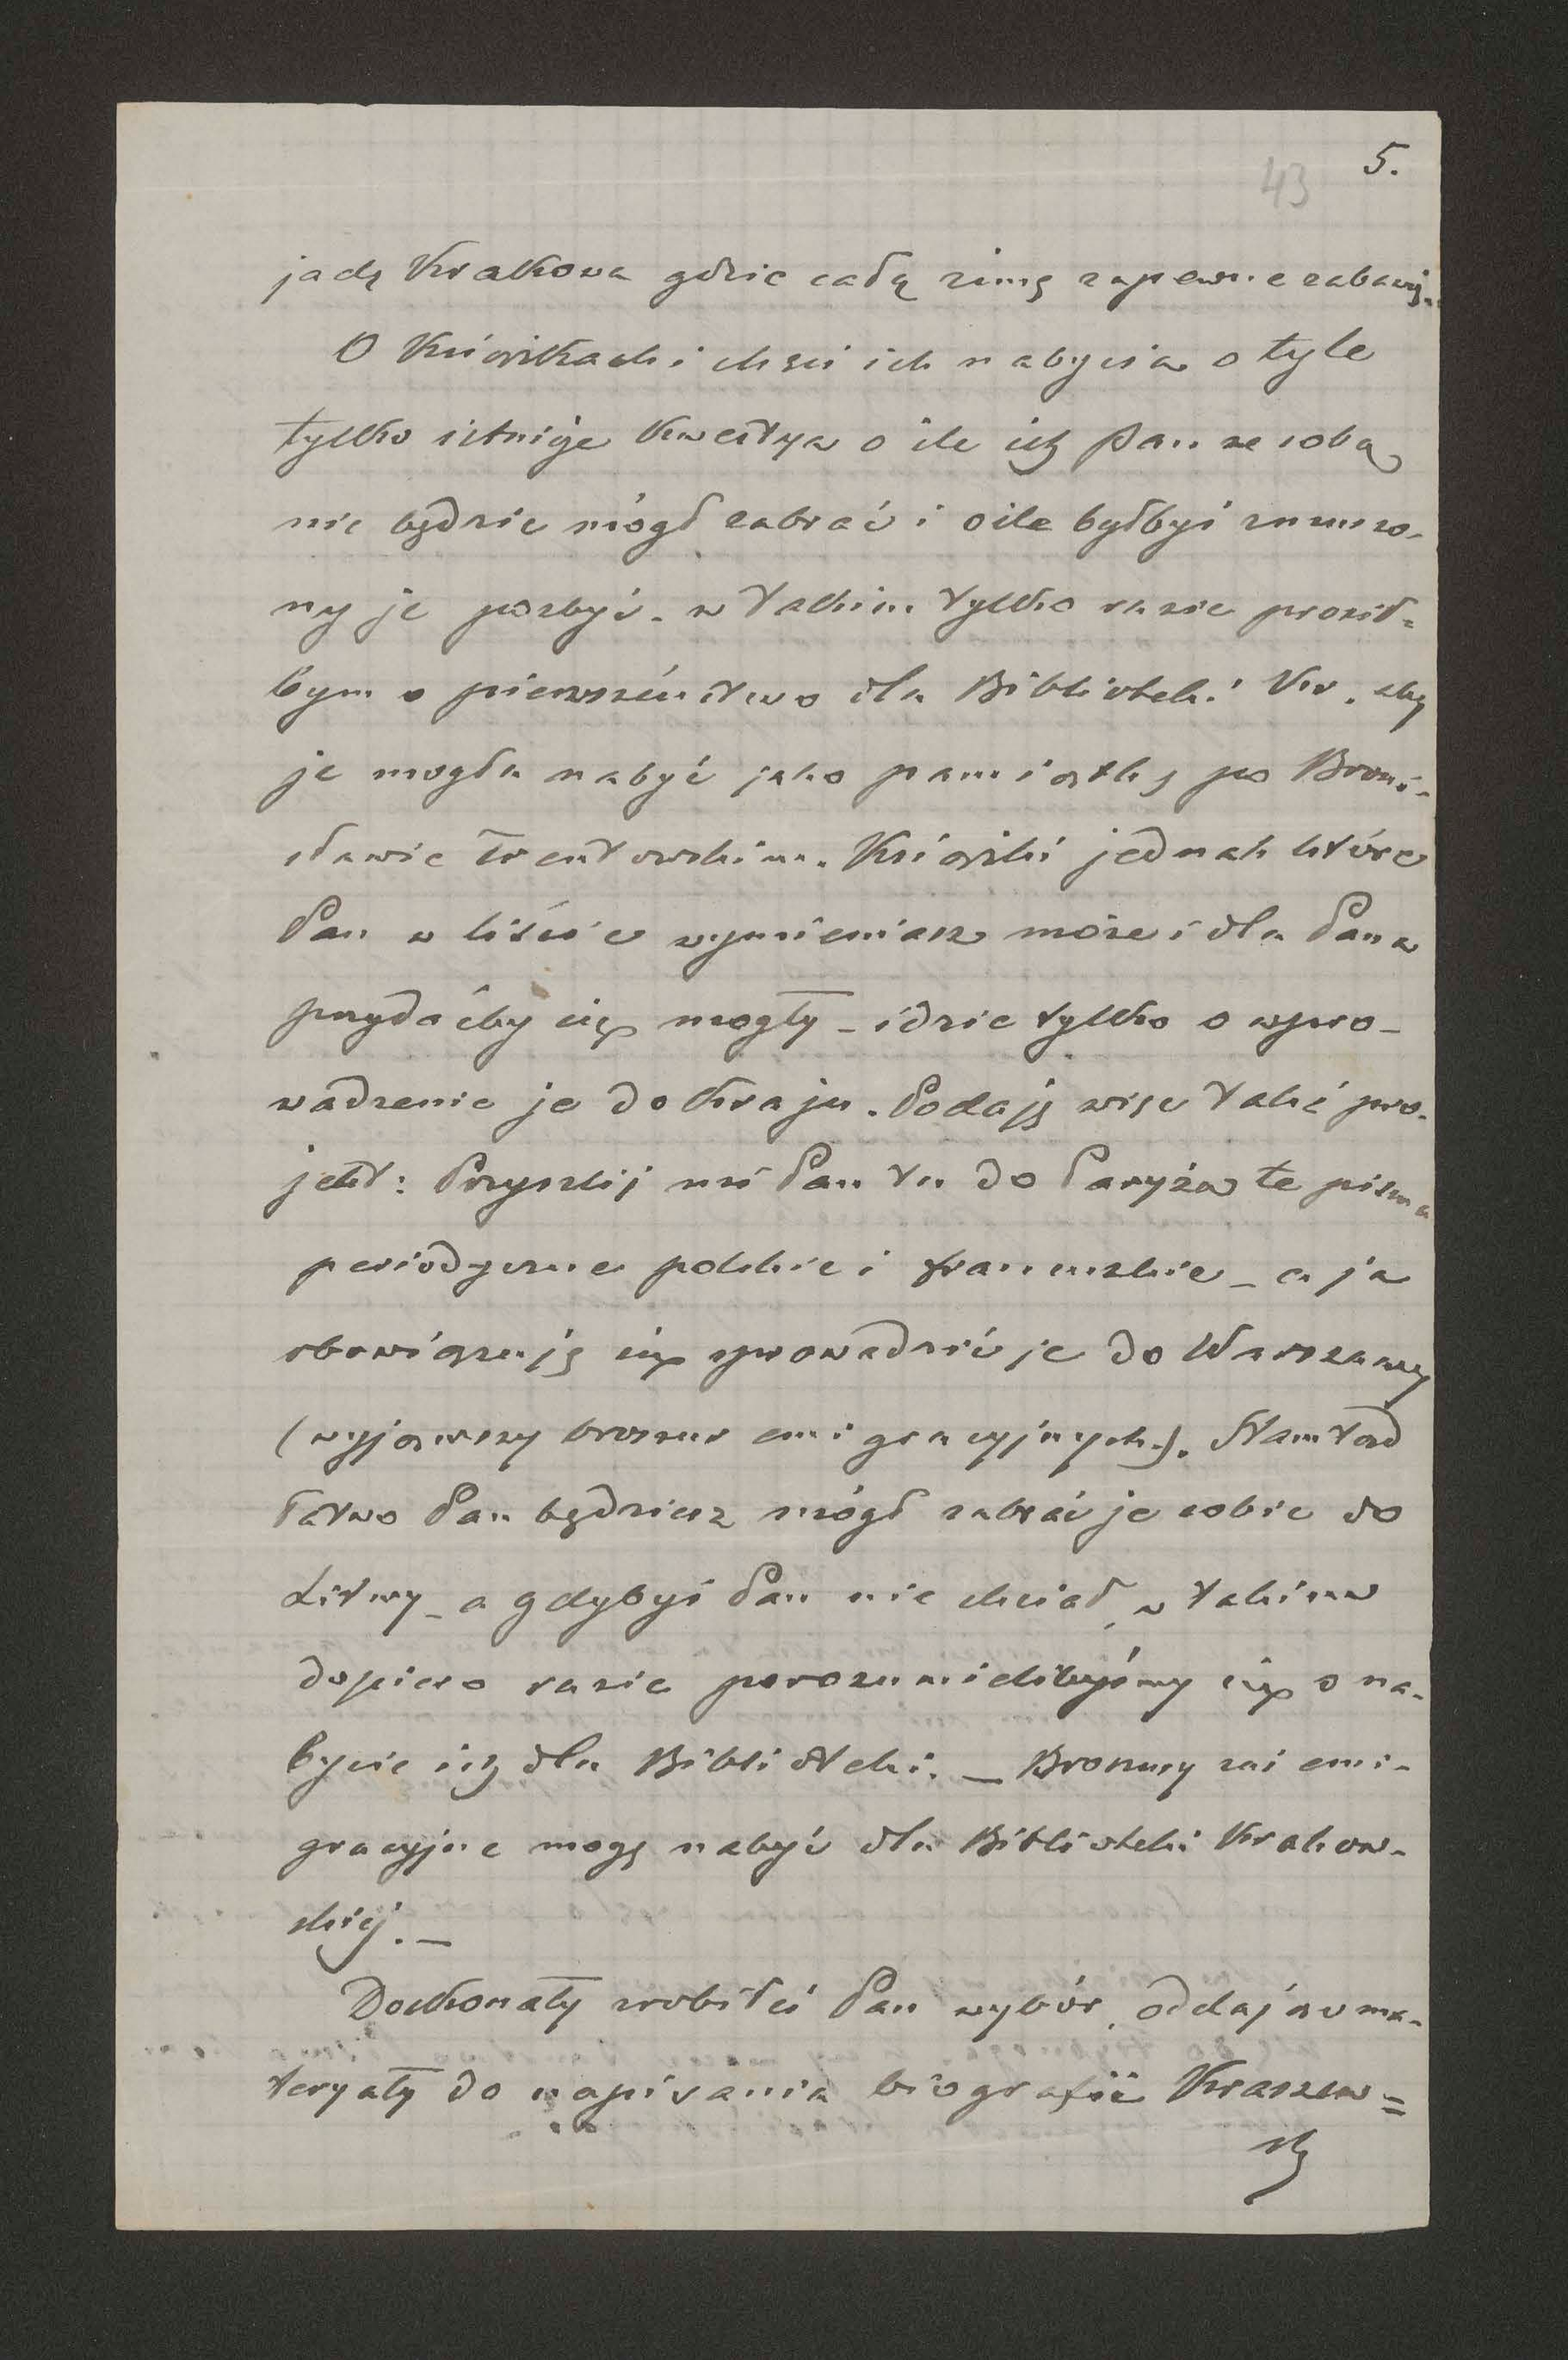 5.
43
jadę Krakowa gdzie całą zimę zapewne zabawię.
O Książkach i chęci ich nabycia o tyle
tylko istnieje kwestya o ile ich Pan ze sobą
nie będzie mógł zabrać i o ile byłbyś zmuszo-
ny je pozbyć. w takim tylko razie prosił-
bym o pierwszeństwo dla Biblioteki Kr. aby
je mogła nabyć jako pamiątkę po Broni-
sławie Trentowskim. Książki jednak które
Pan w liście wymieniasz może i dla Pana
przydaćby się mogły – idzie tylko o wpro-
wadzenie je do Kraju. Podaję więc taki pro-
jekt: Przyszlij mi Pan tu do Paryża te pisma
periodyczne polskie i francuzkie – a ja
obowiązuję się sprowadzić je do Warszawy
(wyjąwszy broszur emigracyjnych). Stamtąd
łatwo Pan będziesz mógł zabrać je sobie do
Litwy – a gdybyś Pan nie chciał, w takim
dopiero razie porozumielibyśmy się o na-
bycie ich dla Biblioteki. – Broszury zaś emi-
gracyjne mogę nabyć dla Biblioteki Krakow-
skiej. –
Doskonały zrobiłeś Pan wybór, oddając ma-
teryały do napisania biografii Kraszew=
sk